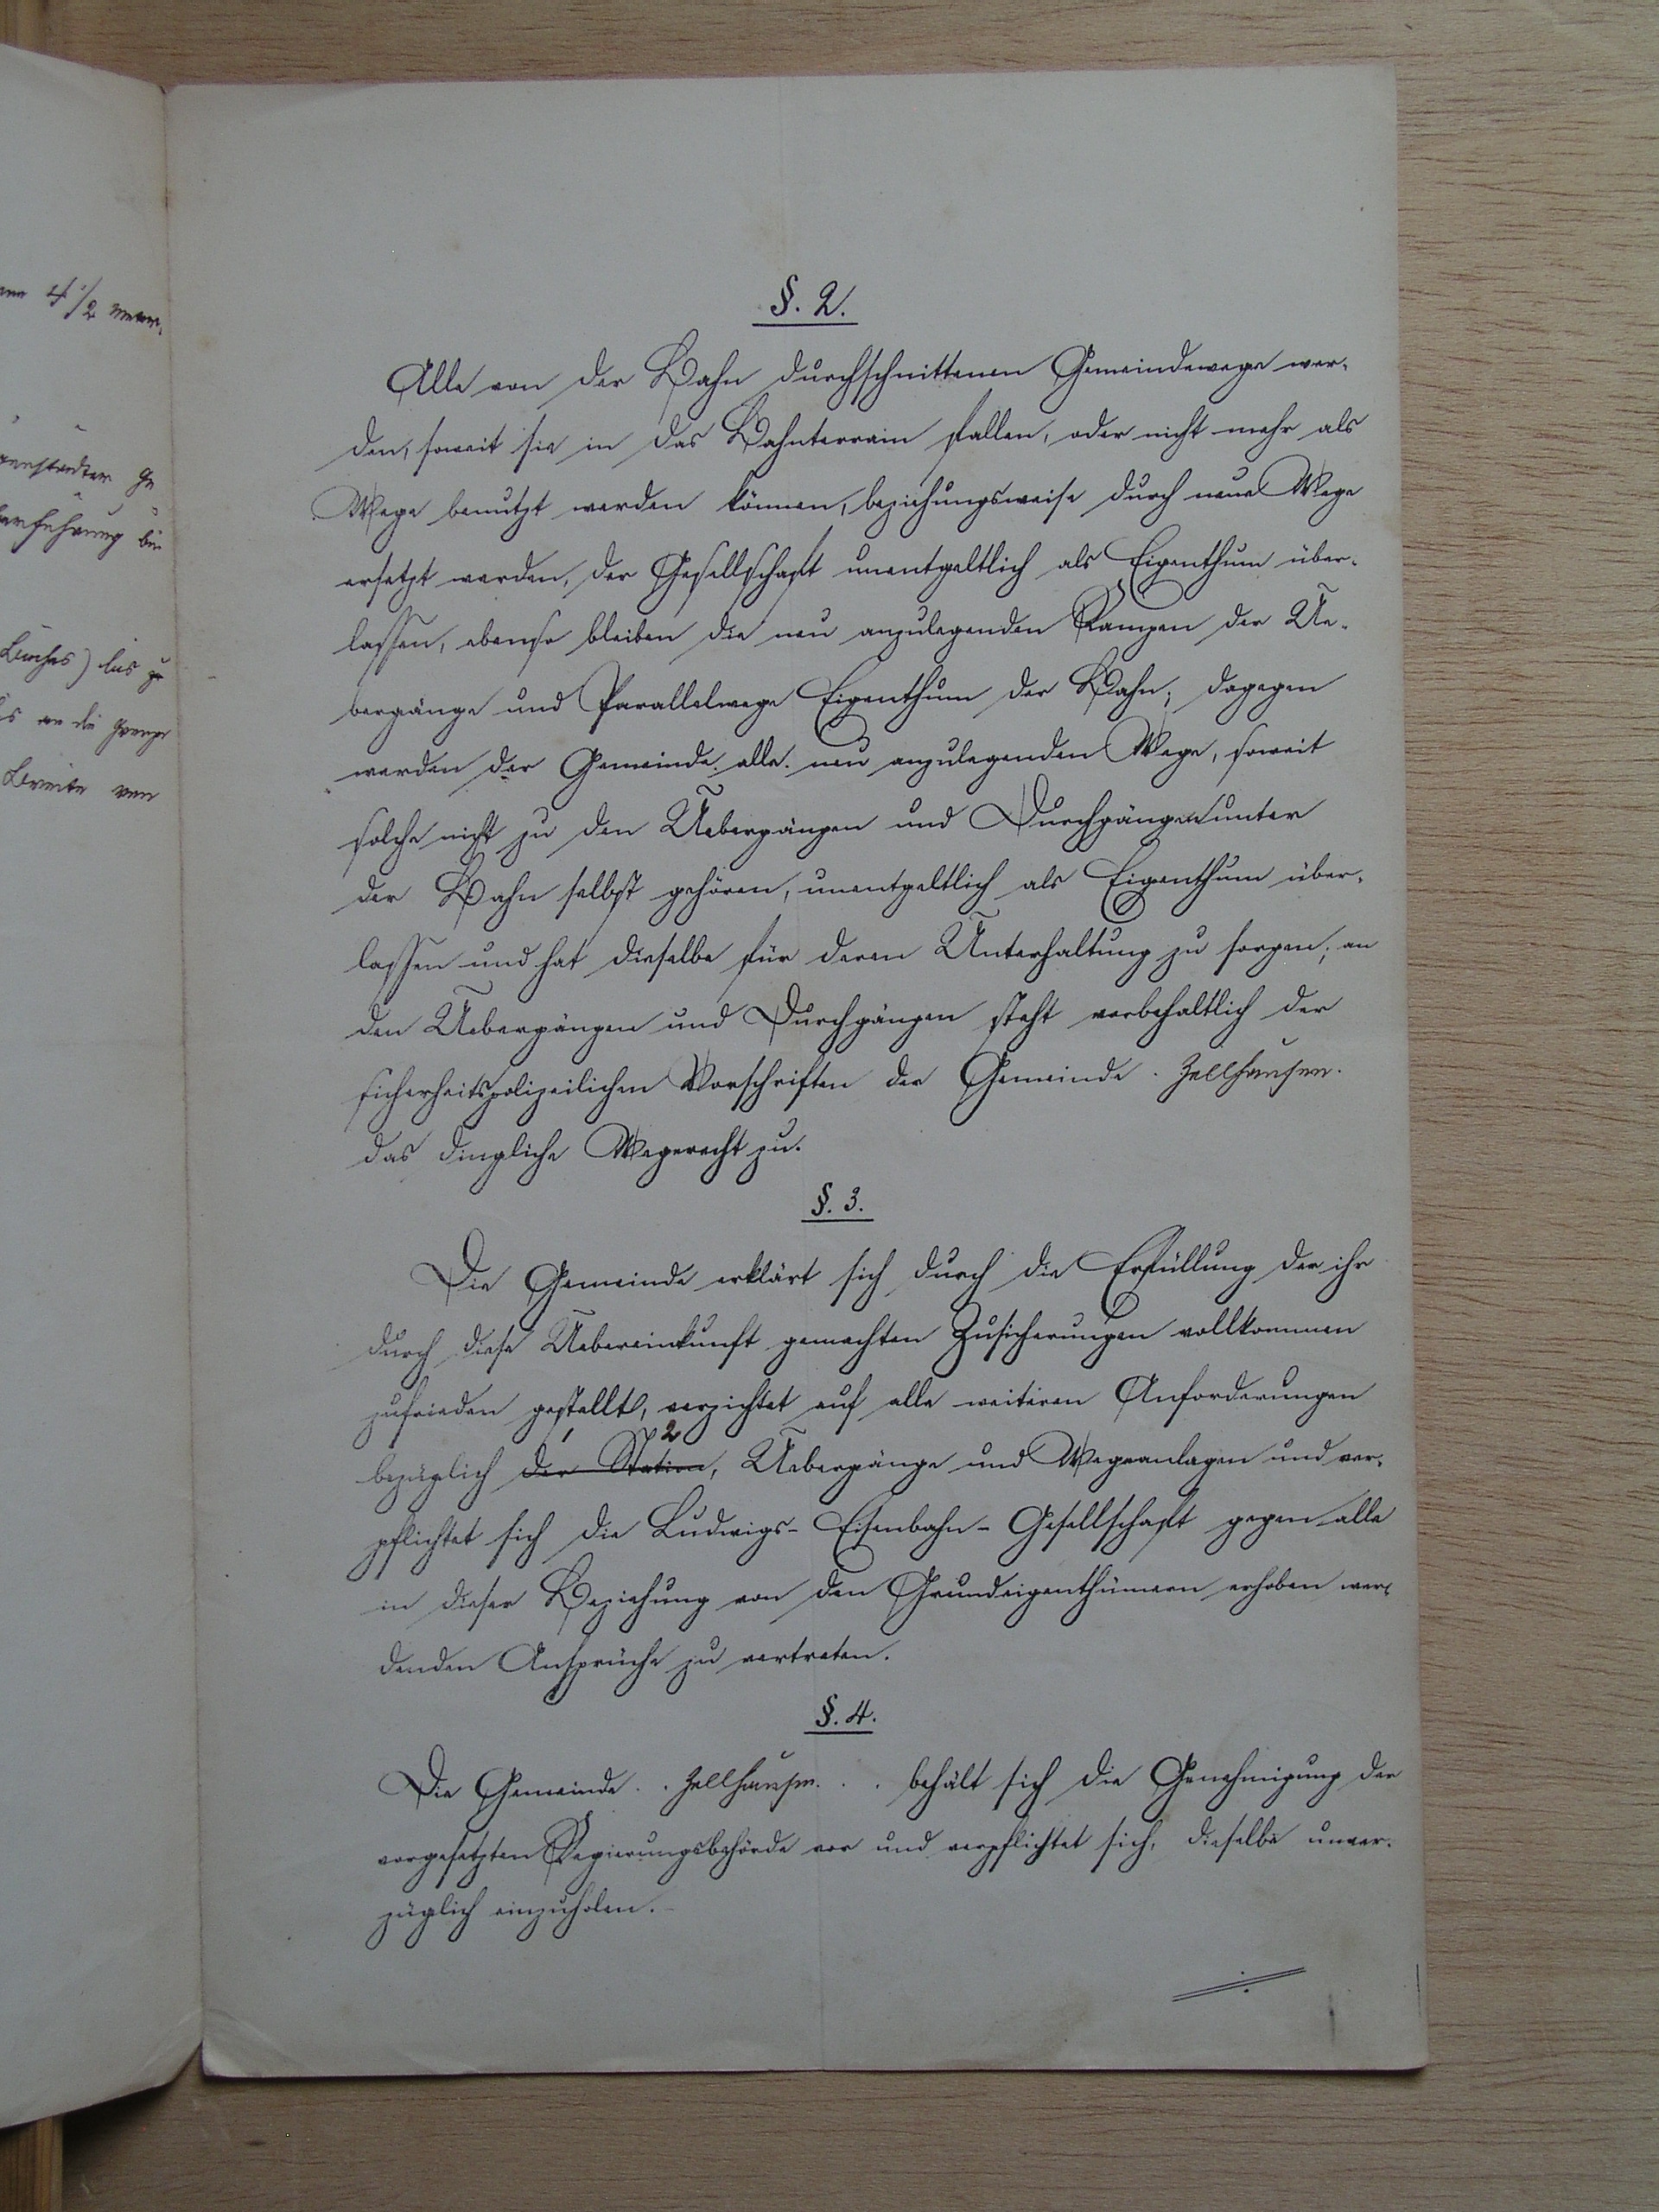 4 1/2 Meter,
Ge
bis zu
an die Grenze
Breite von
§. 2.
Alle von der Bahn durchschnittenen Gemeindewege wer-
den, soweit sie in das Bahnterrain fallen, oder nicht mehr als
Wege benutzt werden können, beziehungsweise durch neue Wege
ersetzt werden, der Gesellschaft unentgeltlich als Eigenthum über-
lassen, ebenso bleiben die neu anzulegenden Rampen der Ue-
bergänge und Parallelwege Eigenthum der Bahn; dagegen
werden der Gemeinde alle neu anzulegenden Wege, soweit
solche nicht zu den Uebergängen und Durchgängen unter
der Bahn selbst gehören, unentgeltlich als Eigenthum über-
lassen und hat dieselbe für deren Unterhaltung zu sorgen; an
den Uebergängen und Durchgängen steht vorbehaltlich der
sicherheitspolizeilichen Vorschriften der Gemeinde . Zellhausen.
das dingliche Wegerecht zu.
§. 3.
Die Gemeinde erklärt sich durch die Erfüllung der ihr
durch diese Uebereinkunft gemachten Zusicherungen vollkommen
zufrieden gestellt, verzichtet auf alle weiteren Anforderungen
bezüglich der Station, Uebergänge und Wegeanlagen und ver-
pflichtet sich die Ludwigs-Eisenbahn-Gesellschaft gegen alle
in dieser Beziehung von den Grundeigenthümern erhoben wer-
denden Ansprüche zu vertreten.
§. 4.
Die Gemeinde . . Zellhausen . . . behält sich die Genehmigung der
vorgesetzten Regierungsbehörde vor und verpflichtet sich, dieselbe unver-
züglich einzuholen.